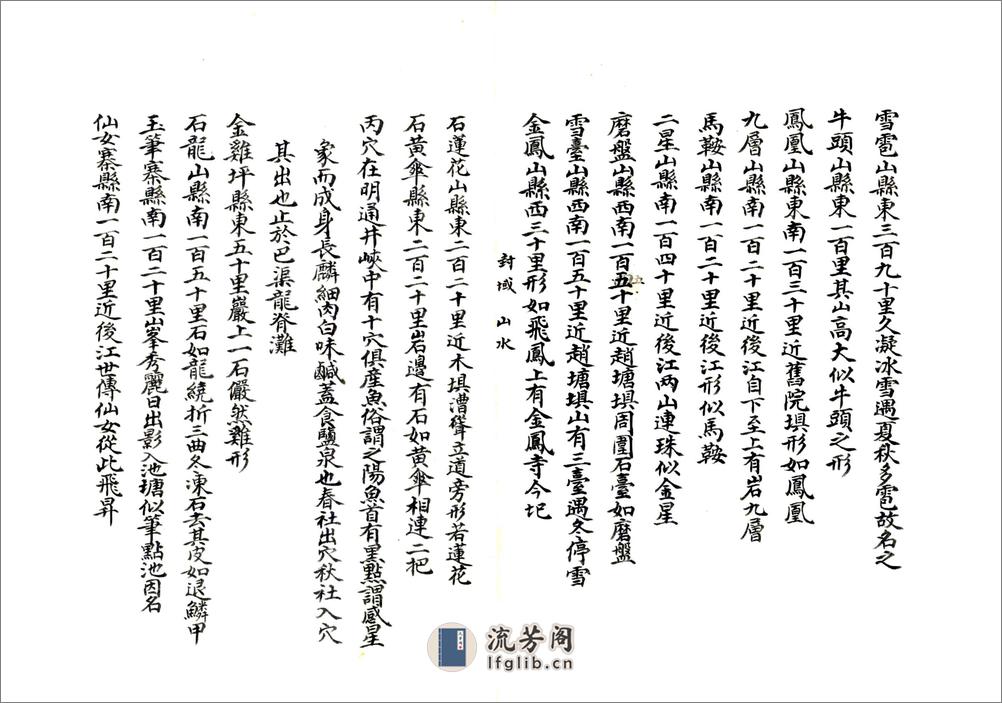 雪雹山縣東三百九十里久凝冰雪遇夏秋多雹故名之
牛頭山縣東一百里其山高大似牛頭之形
鳳凰山縣東南一百三十里近舊院埧形如鳳凰
九層山縣南一百二十里近後江自下至上有岩九層
馬鞍山縣南一百二十里近後江形似馬鞍
二星山縣南一百四十里近後江两山連珠似金星
磨盤山縣西南一百五十里近趙塘埧周圍石臺如磨盤
雪臺山縣西南一百五十里近趙塘埧山有三臺遇冬停雪
金鳳山縣西三十里形如飛鳳上有金鳳寺今圮
封域 山水
石蓮花山縣東二百二十里近木埧漕聳立道旁形若蓮花
石黃傘縣東二百二十里岩邊有石如黃傘相連二把
丙穴在明通井峽中有十穴俱産魚俗謂之陽魚首有黑點謂感星
家而成身長麟細肉白味鹹蓋食鹽泉也春社出穴秋社入穴
其出也止於巴渠龍脊灘
金雞坪縣東五十里巖上一石儼然雞形
石龍山縣南一百五十里石如龍繞折三曲冬凍石去其皮如退鱗甲
玉筆寨縣南一百二十里峯秀麗日出影入池塘似筆點池因名
仙女寨縣南一百二十里近後江世傳仙女從此飛昇
流芳阁
lfglib.cn